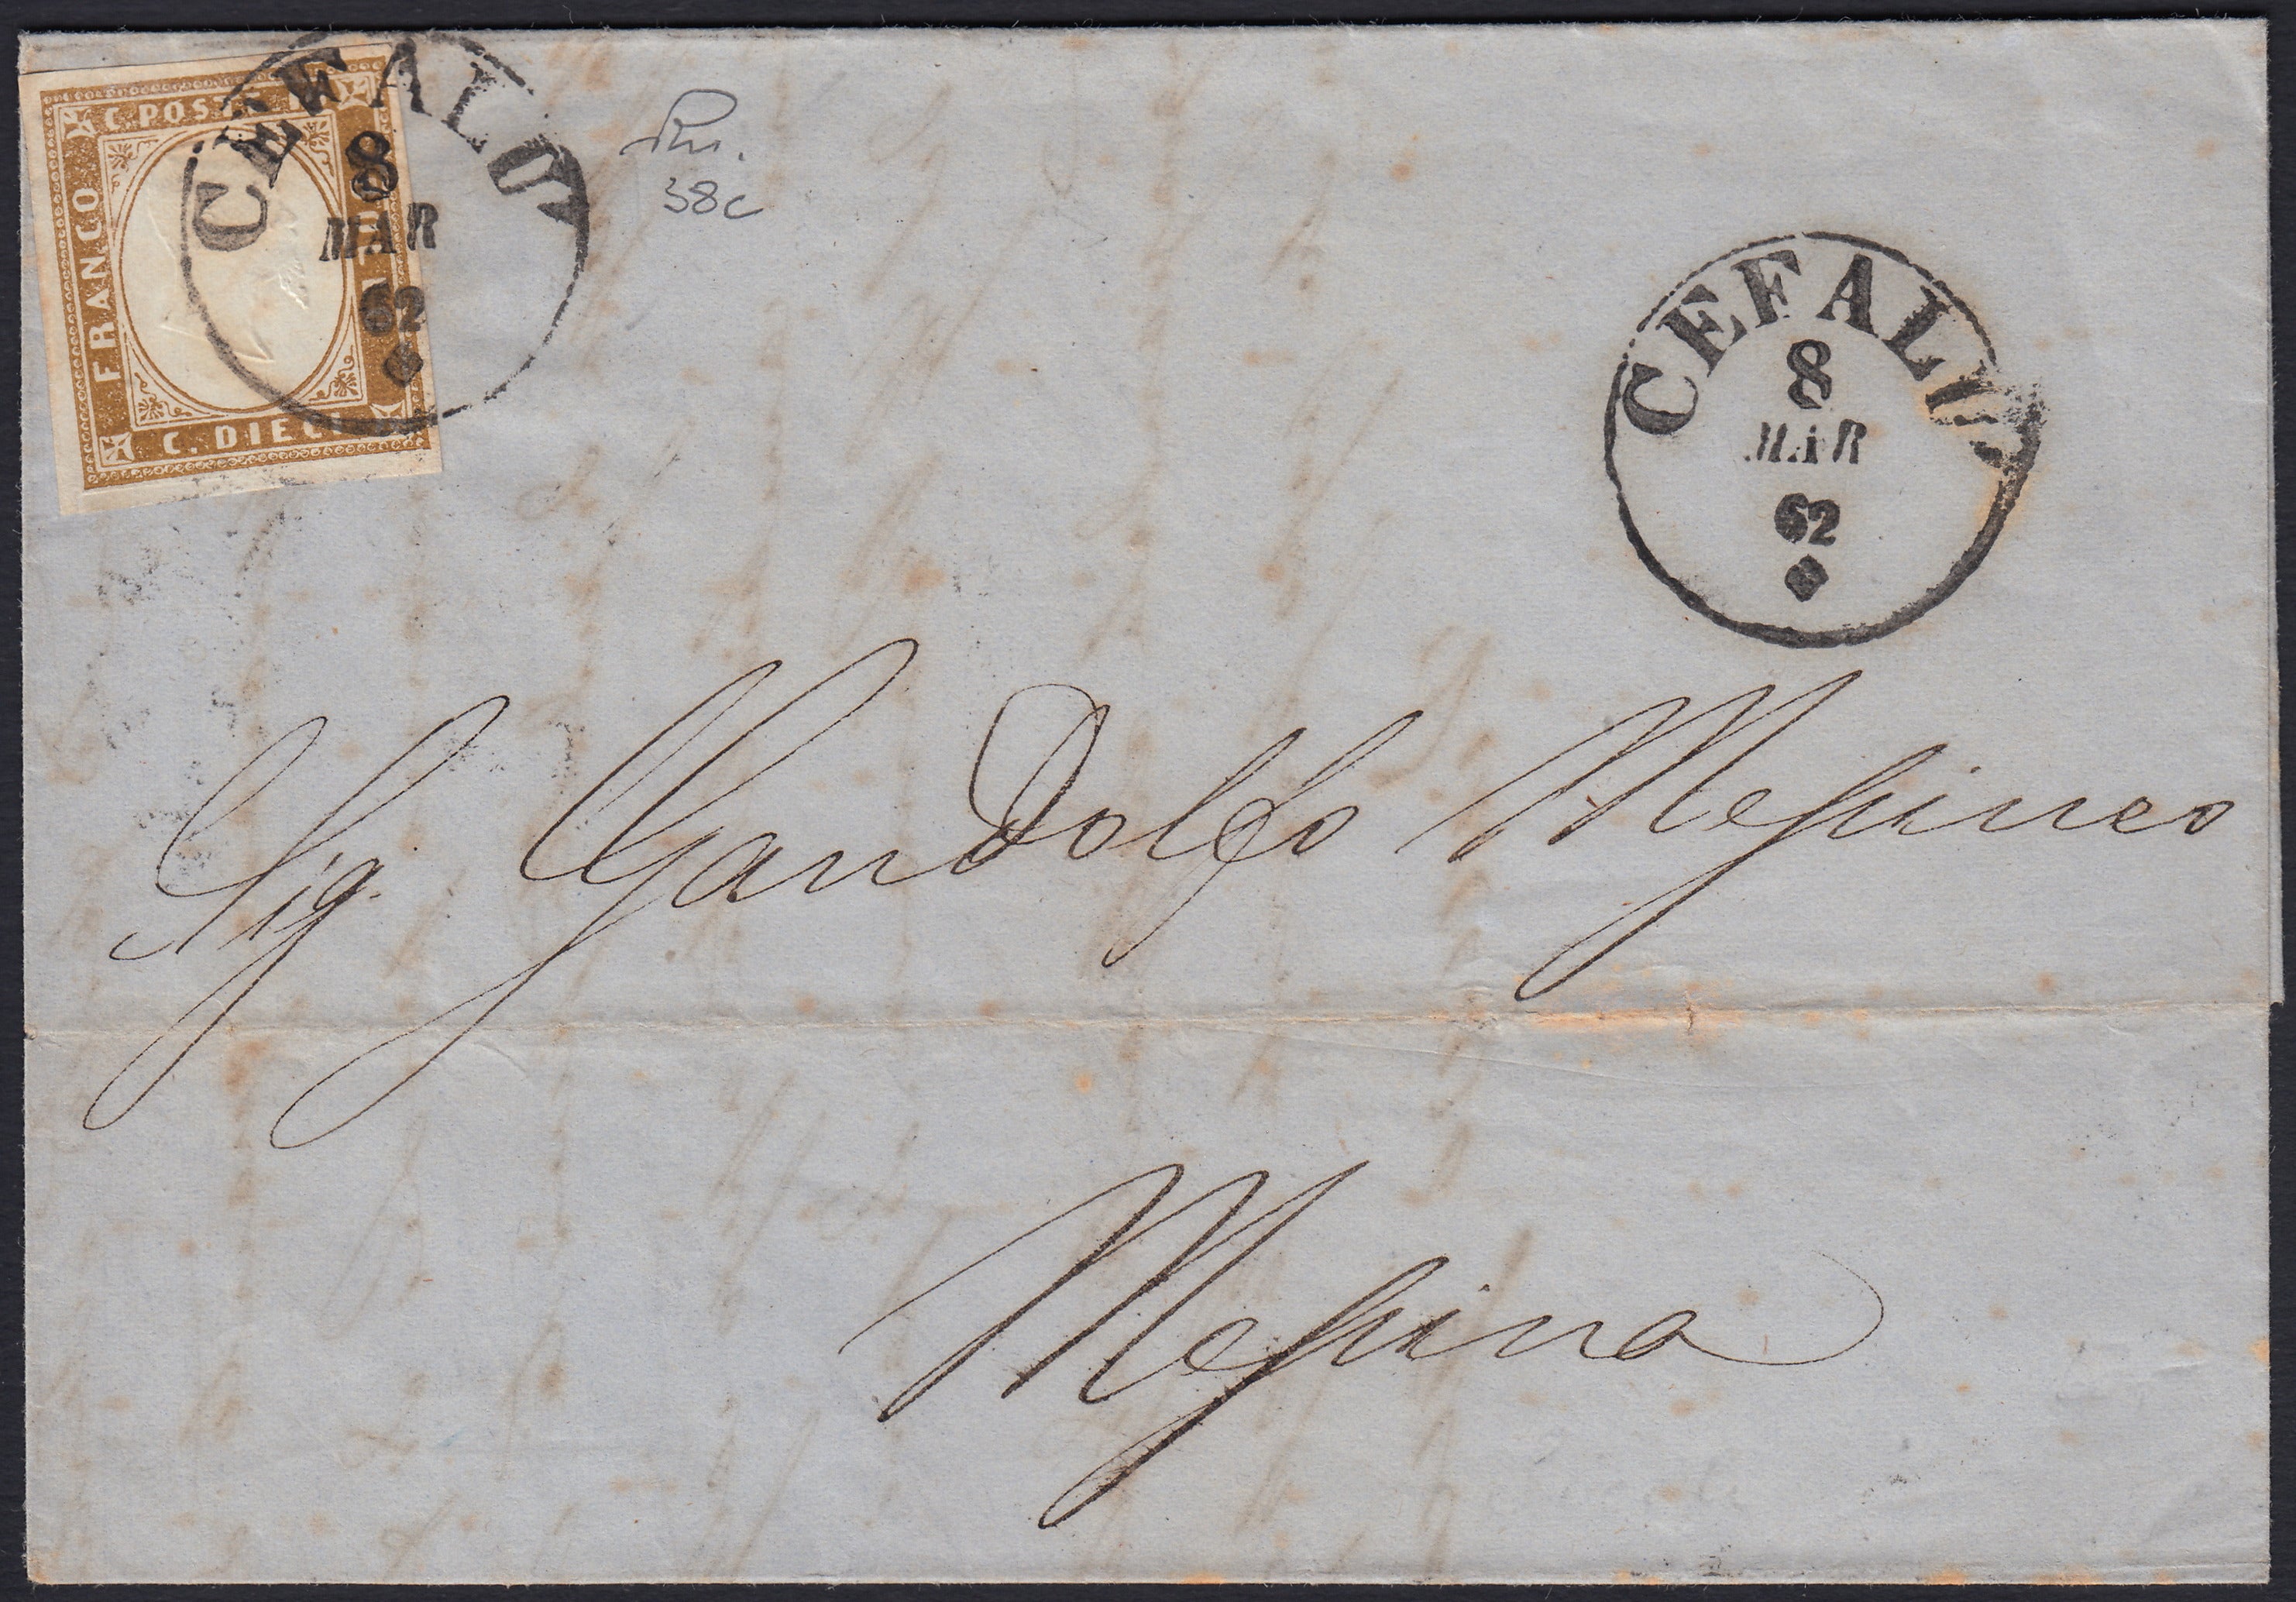 C. POSTE
FRANCO
C. DIECI
CEFALÙ
8
MAR
62
38c
CEFALÙ
8
MAR
62
Sig. Gandolfo Messineo
Messina